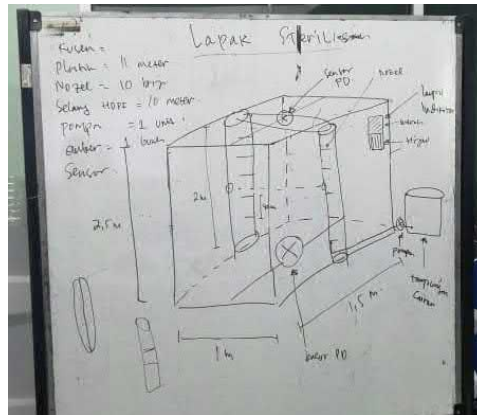 Lapak Sterilisasi
Kusen =
Plastik = 11 meter
Nozel = 10 biji
Selang HDPE = 10 meter
pompa = 1 unit
ember = 1 buah
Sensor
sensor PD
nozel
lampu Indikator
merah
hijau
2m
2,5 m
pompa
1,5 m
1 m
sensor PD